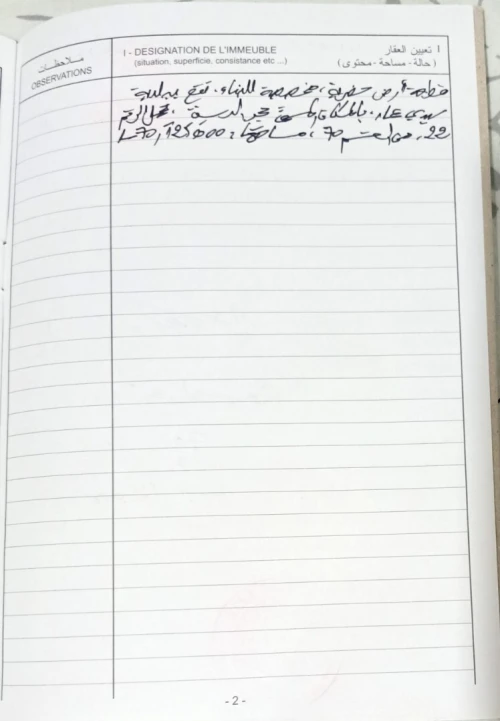 ملاحظات
OBSERVATIONS
I - DESIGNATION DE L'IMMEUBLE
(situation, superficie, consistance etc ...)
I تعيين العقار
(حالة - مساحة - محتوى)
قطعة أرض حضرية، مخصصة للبناء، تقع ببلدية
سيدي عمار، بالمكان تحمل الرقم
22، من القسم 70، مساحتها
- 2 -